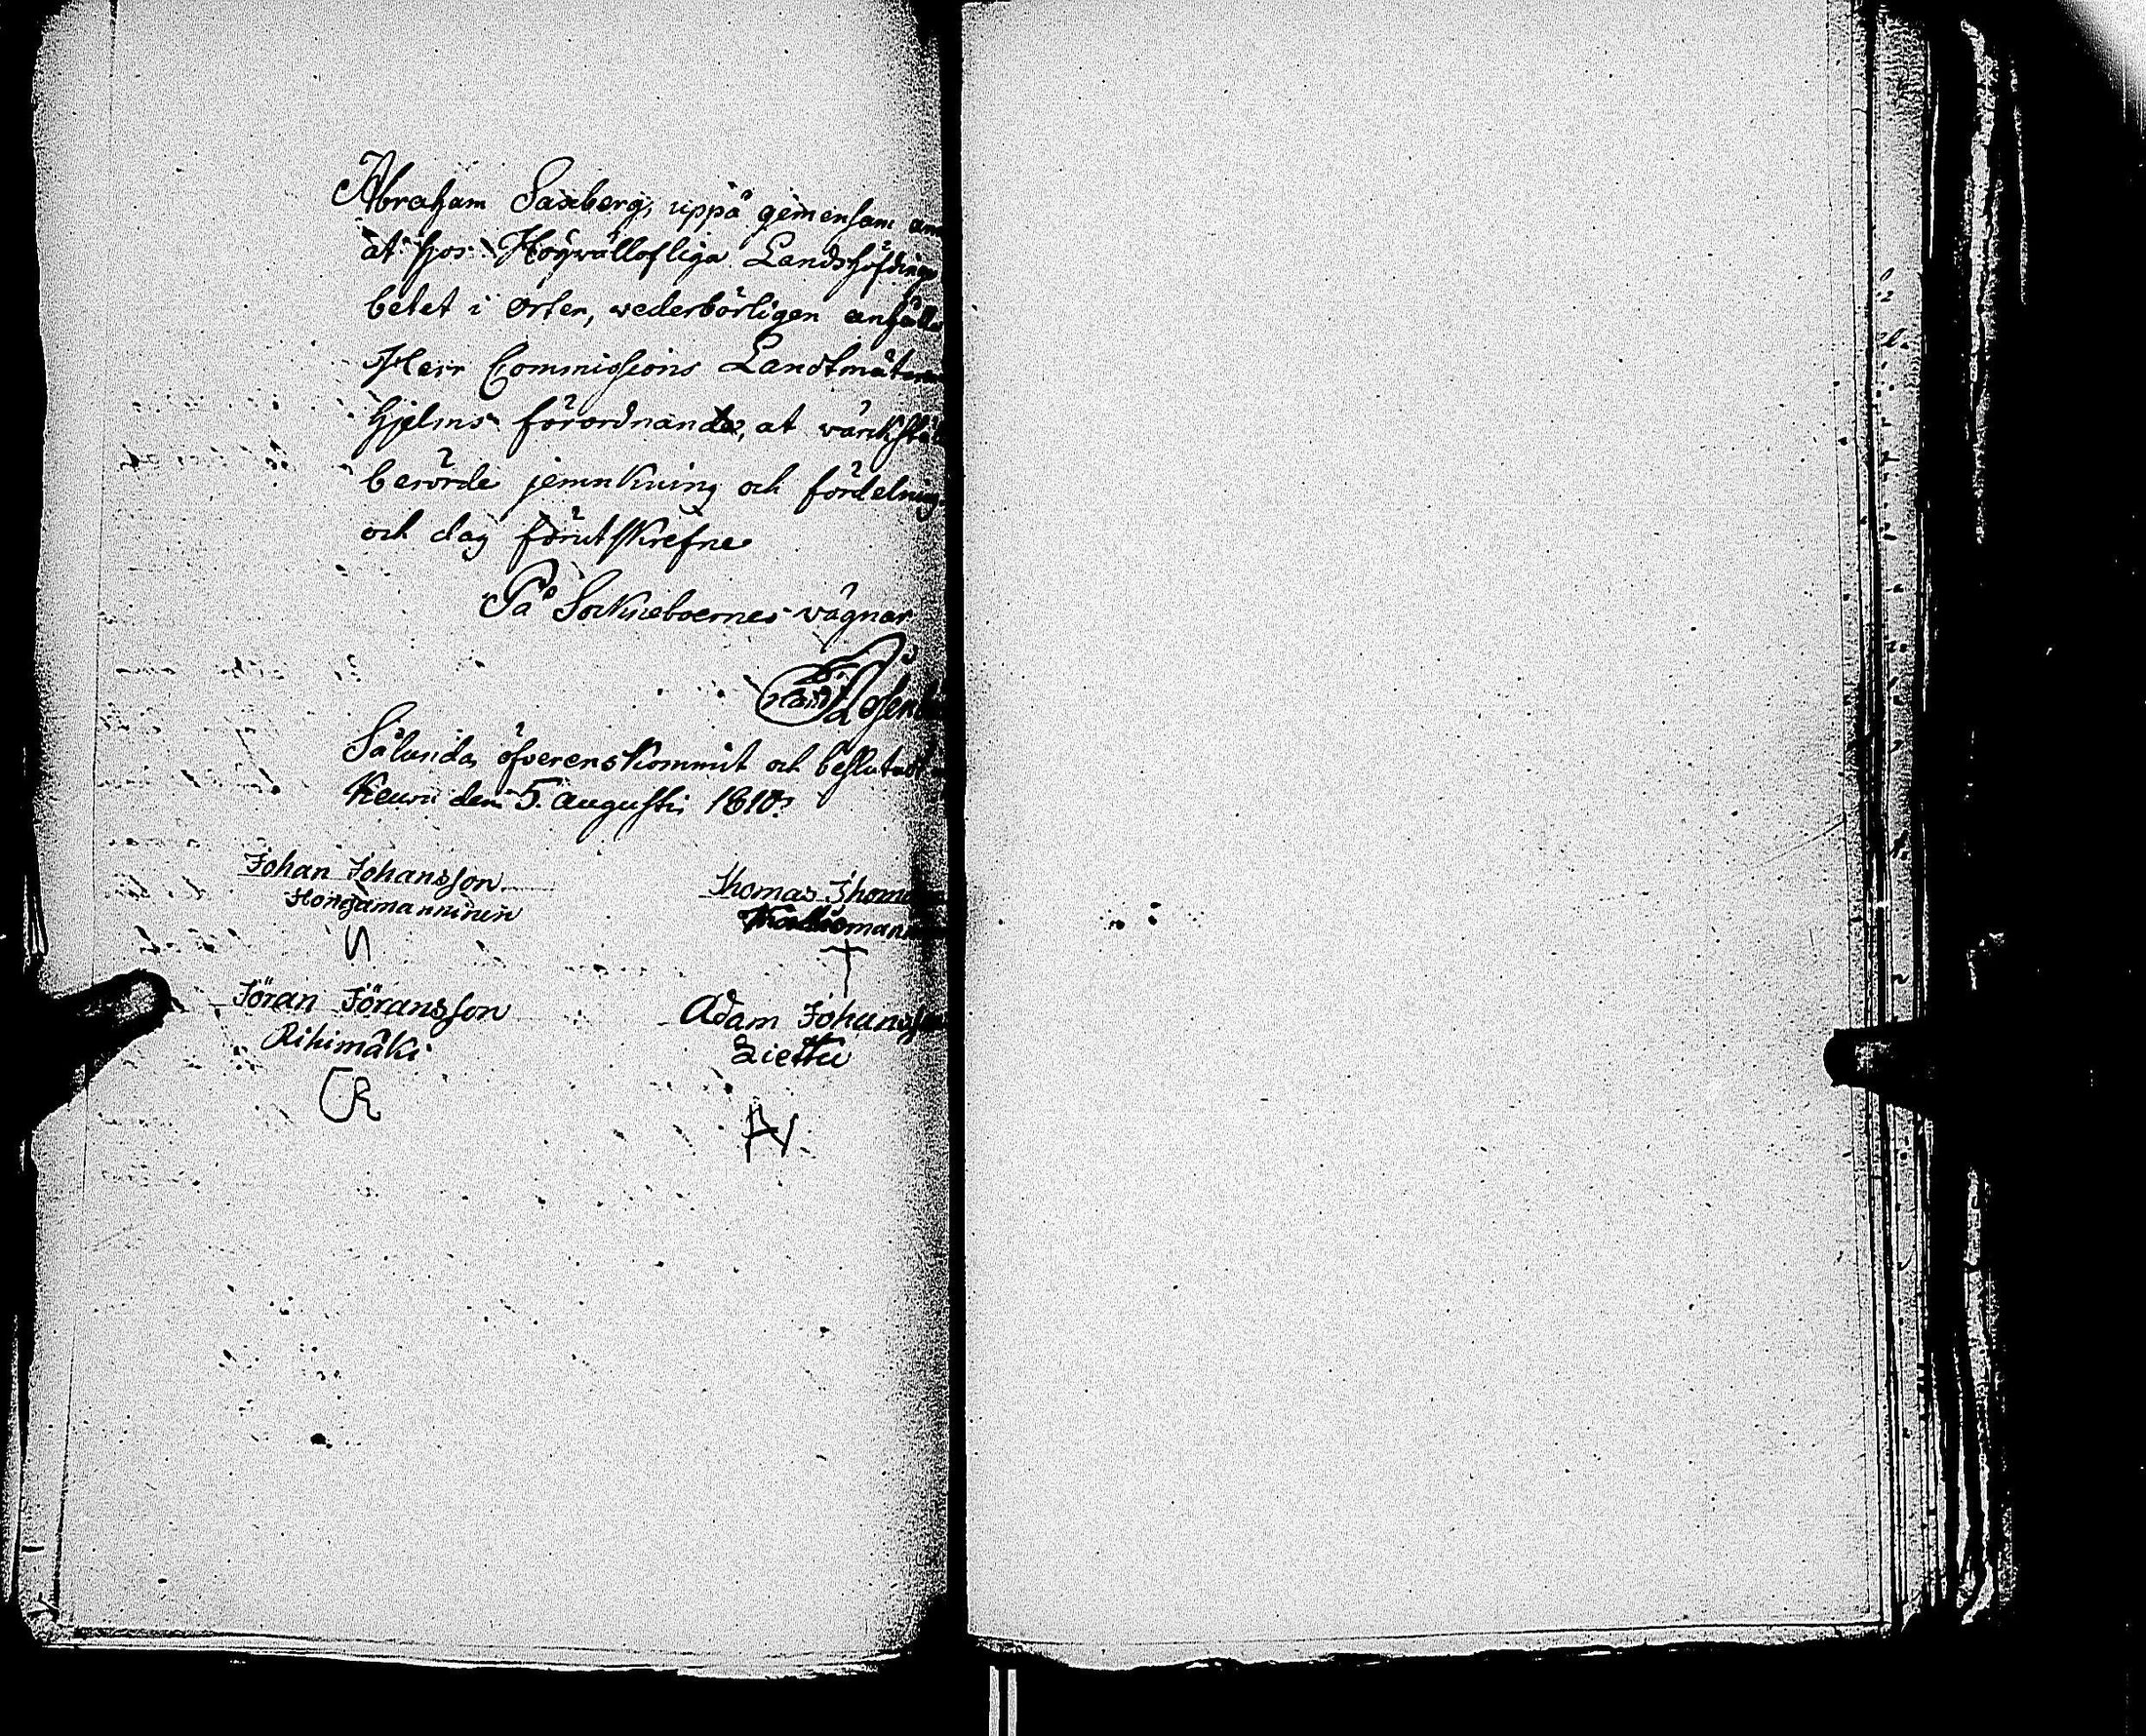 Abraham Saxberg, uppå gemensam
at hos Högvällofliga Landshöfdinge
betet i orten, vederbörligen anhålla
Herr Commissions Landtmätaren
hjelms förordnande, at värkställ
berörde jemnkning och fördelning
och dag förutskrefne
På Sockneboernes vägnar
Sålunda öfverenskommit och beslutadt
Keuru den 5. augusti 1810.
Johan Johansson Thomas Thoma
Hongamanninen
Jöran Jöransson Adam Johansson
Rihimäki